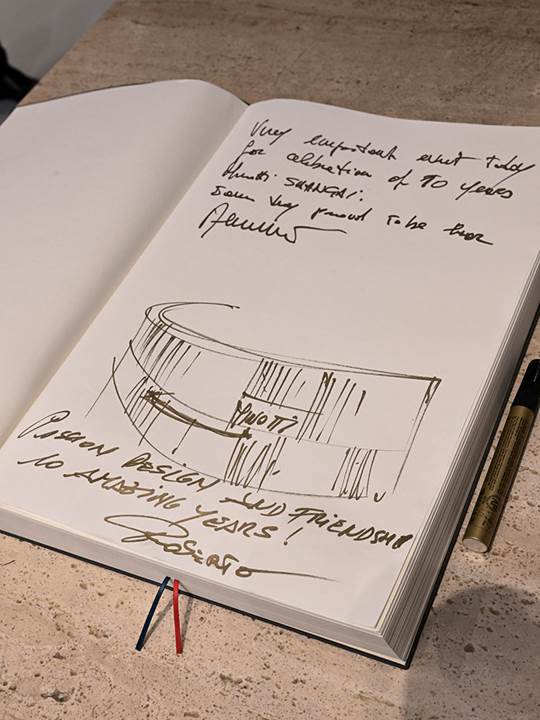 Very important event today
for celebration of 10 years
Minotti SHANGAI.
very proud to be here
MINOTTI
PASSION DESIGN AND FRIENDSHIP
10 AMAZING YEARS!
ROBERTO